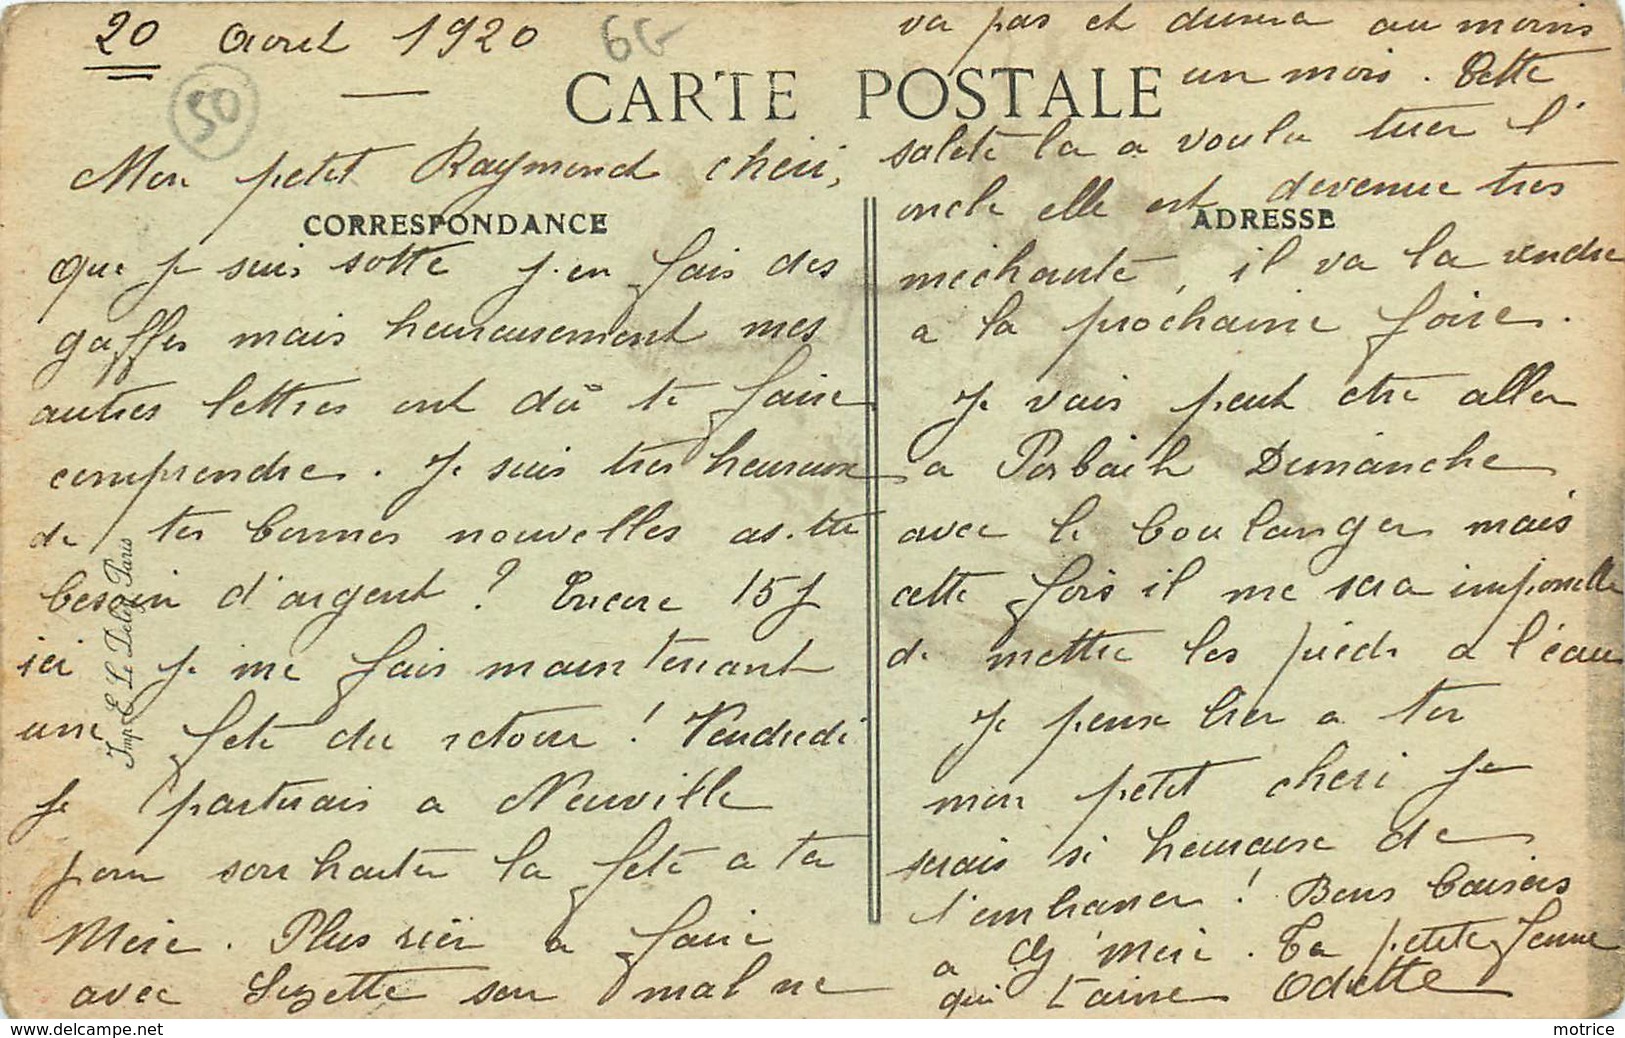 20 Aout 1920
6G
50
CARTE POSTALE
Mon petit Raymond cheri,
CORRESPONDANCE
que je suis sotte j.en fais des
gaffes mais heureusement mes
autres lettres ont dû te faire
comprendre. Je suis tres heureuse
de tes bonnes nouvelles as.tu
besoin d'argent ? Encore 15 j
ici je me fais maintenant
une fete du retour ! Vendredi
je partirais a Neuville
pour souhaiter la fete a ta
Mere. Plus rien a faire
avec Suzette son mal ne
va pas et durera au moins
un mois. Cette
saleté la a voulu tuer l'
oncle elle est devenue tres
ADRESSE
mechante, il va la vendre
a la prochaine foire.
Je vais peut etre aller
a Dimanche
avec le boulanger mais
cette fois il me sera impossible
de mettre les pieds a l'eau
Je pense bien a toi
mon petit cheri je
serais si heureuse de
t'embrasser ! Bons baisers
a mère. Ta petite femme
qui t'aime Odette
Imp. E. Le Deley, Paris
motrice
www.delcampe.net